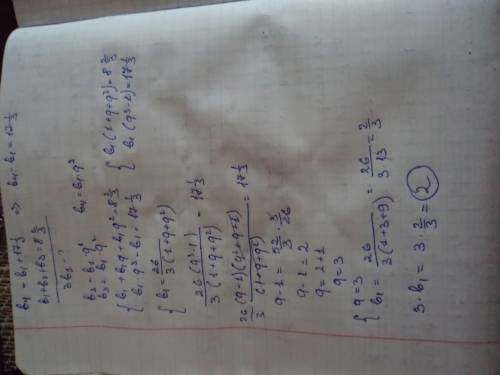 b₄ = b₁ + 17 1/3 ⇒ b₄ - b₁ = 17 1/3
b₁ + b₂ + b₃ = 8 2/3
3b₁ - ?
b₂ = b₁·q
b₃ = b₁·q² b₄ = b₁·q³
{ b₁ + b₁q + b₁q² = 8 2/3 { b₁(1+q+q²) = 8 2/3
{ b₁·q³ - b₁ = 17 1/3 { b₁(q³-1) = 17 1/3
{ b₁ = 26 / 3(1+q+q²)
26(q³-1) / 3(1+q+q²) = 17 1/3
26(q-1)(q²+q+1) / 3(1+q+q²) = 17 1/3
q-1 = 52/3 · 3/26
q-1 = 2
q = 2+1
q = 3
{ q = 3
{ b₁ = 26 / 3(1+3+9) = 26 / 3·13 = 2/3
3·b₁ = 3·2/3 = 2